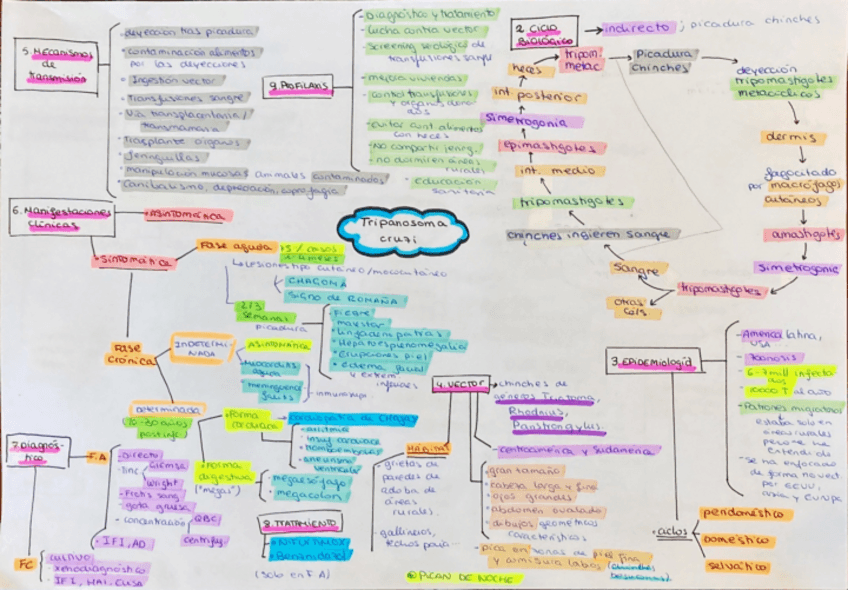 Tripanosoma
cruzi
2. CICLO
BIOLÓGICO
indirecto; picadura chinches
tripom.
metac
Picadura
chinches
deyección
tripomastigotes
metacíclicos
dermis
fagocitado
por macrófagos
cutáneos
amastigotes
simetrogonia
tripomastigotes
sangre
otras
céls
chinches ingieren sangre
tripomastigotes
int. medio
epimastigotes
simetrogonia
int posterior
heces
3. EPIDEMIOLOGÍA
- América latina,
USA...
- zoonosis
- 6-7 mill infecta
dos
- Patrones migratorios
estaba solo en
áreas rurales
pero se ha
- Se ha enfocado
de forma no vect.
por EEUU,
asia y EUROPA
- ciclos
peridoméstico
doméstico
selvático
4. VECTOR
chinches de
géneros Triatoma,
Rhodnius,
Panstrongylus
centroamérica y Sudamérica
- gran tamaño
- cabeza larga y fina
- ojos grandes
- abdomen ovalado
- dibujos geométricos
característicos
- pica en zonas de piel fina
y comisura labios
PICAN DE NOCHE
HÁBITAT
- grietas de
paredes de
adobe de
áreas
rurales.
- gallineros,
techos paja...
5. Mecanismos
de
transmisión
- deyección tras picadura
- contaminación alimentos
por las deyecciones
- Ingestión vector
- Transfusiones sangre
- Vía transplacentaria /
transmamaria
- Trasplante órganos
- Jeringuillas
- manipulación mucosas animales contaminados
- canibalismo, depredación, coprofagia
6. Manifestaciones
clínicas
- ASINTOMÁTICA
- SINTOMÁTICA
Fase aguda
Lesiones tipo cutáneo/mococutáneo
CHAGOMA
SIGNO de ROMAÑA
2/3
semanas
picadura
- FIEBRE
- malestar
- linfadenopatías
- Hepatoesplenomegalia
- Erupciones piel
- edema facial
y extrem
inferiores
Fase
crónica
INDETERMI-
NADA
ASINTOMÁTICA
miocarditis
aguda
inmunosup.
Determinada
10-30 años
postinf.
- forma
cardiaca
cardiopatía de CHAGAS
- arritmia
- insuf. cardiaca
- tromboembolias
- aneurisma
ventricular
- forma
digestiva
("megas")
- megaesófago
- megacolon
7. Diagnós-
tico
F.A
- Directo
- Tinc
Giemsa
Wright
- Frotis sang
- gota gruesa
- concentración
QBC
centrifug.
- IFI, AD
FC
- cultivo
- xenodiagnóstico
- IFI, HAI, ELISA
8. TRATAMIENTO
- NIFURTIMOX
- Benznidazol
(solo en F.A)
9. PROFILAXIS
- Diagnóstico y tratamiento
- Lucha contra vector
- Screening serológico de
transfusiones sangre
- mejora viviendas
- control transfusiones
y órganos dona-
dos
- evitar cont alimentos
con heces
- No compartir jering.
- no dormir en áreas
rurales
- educación
sanitaria